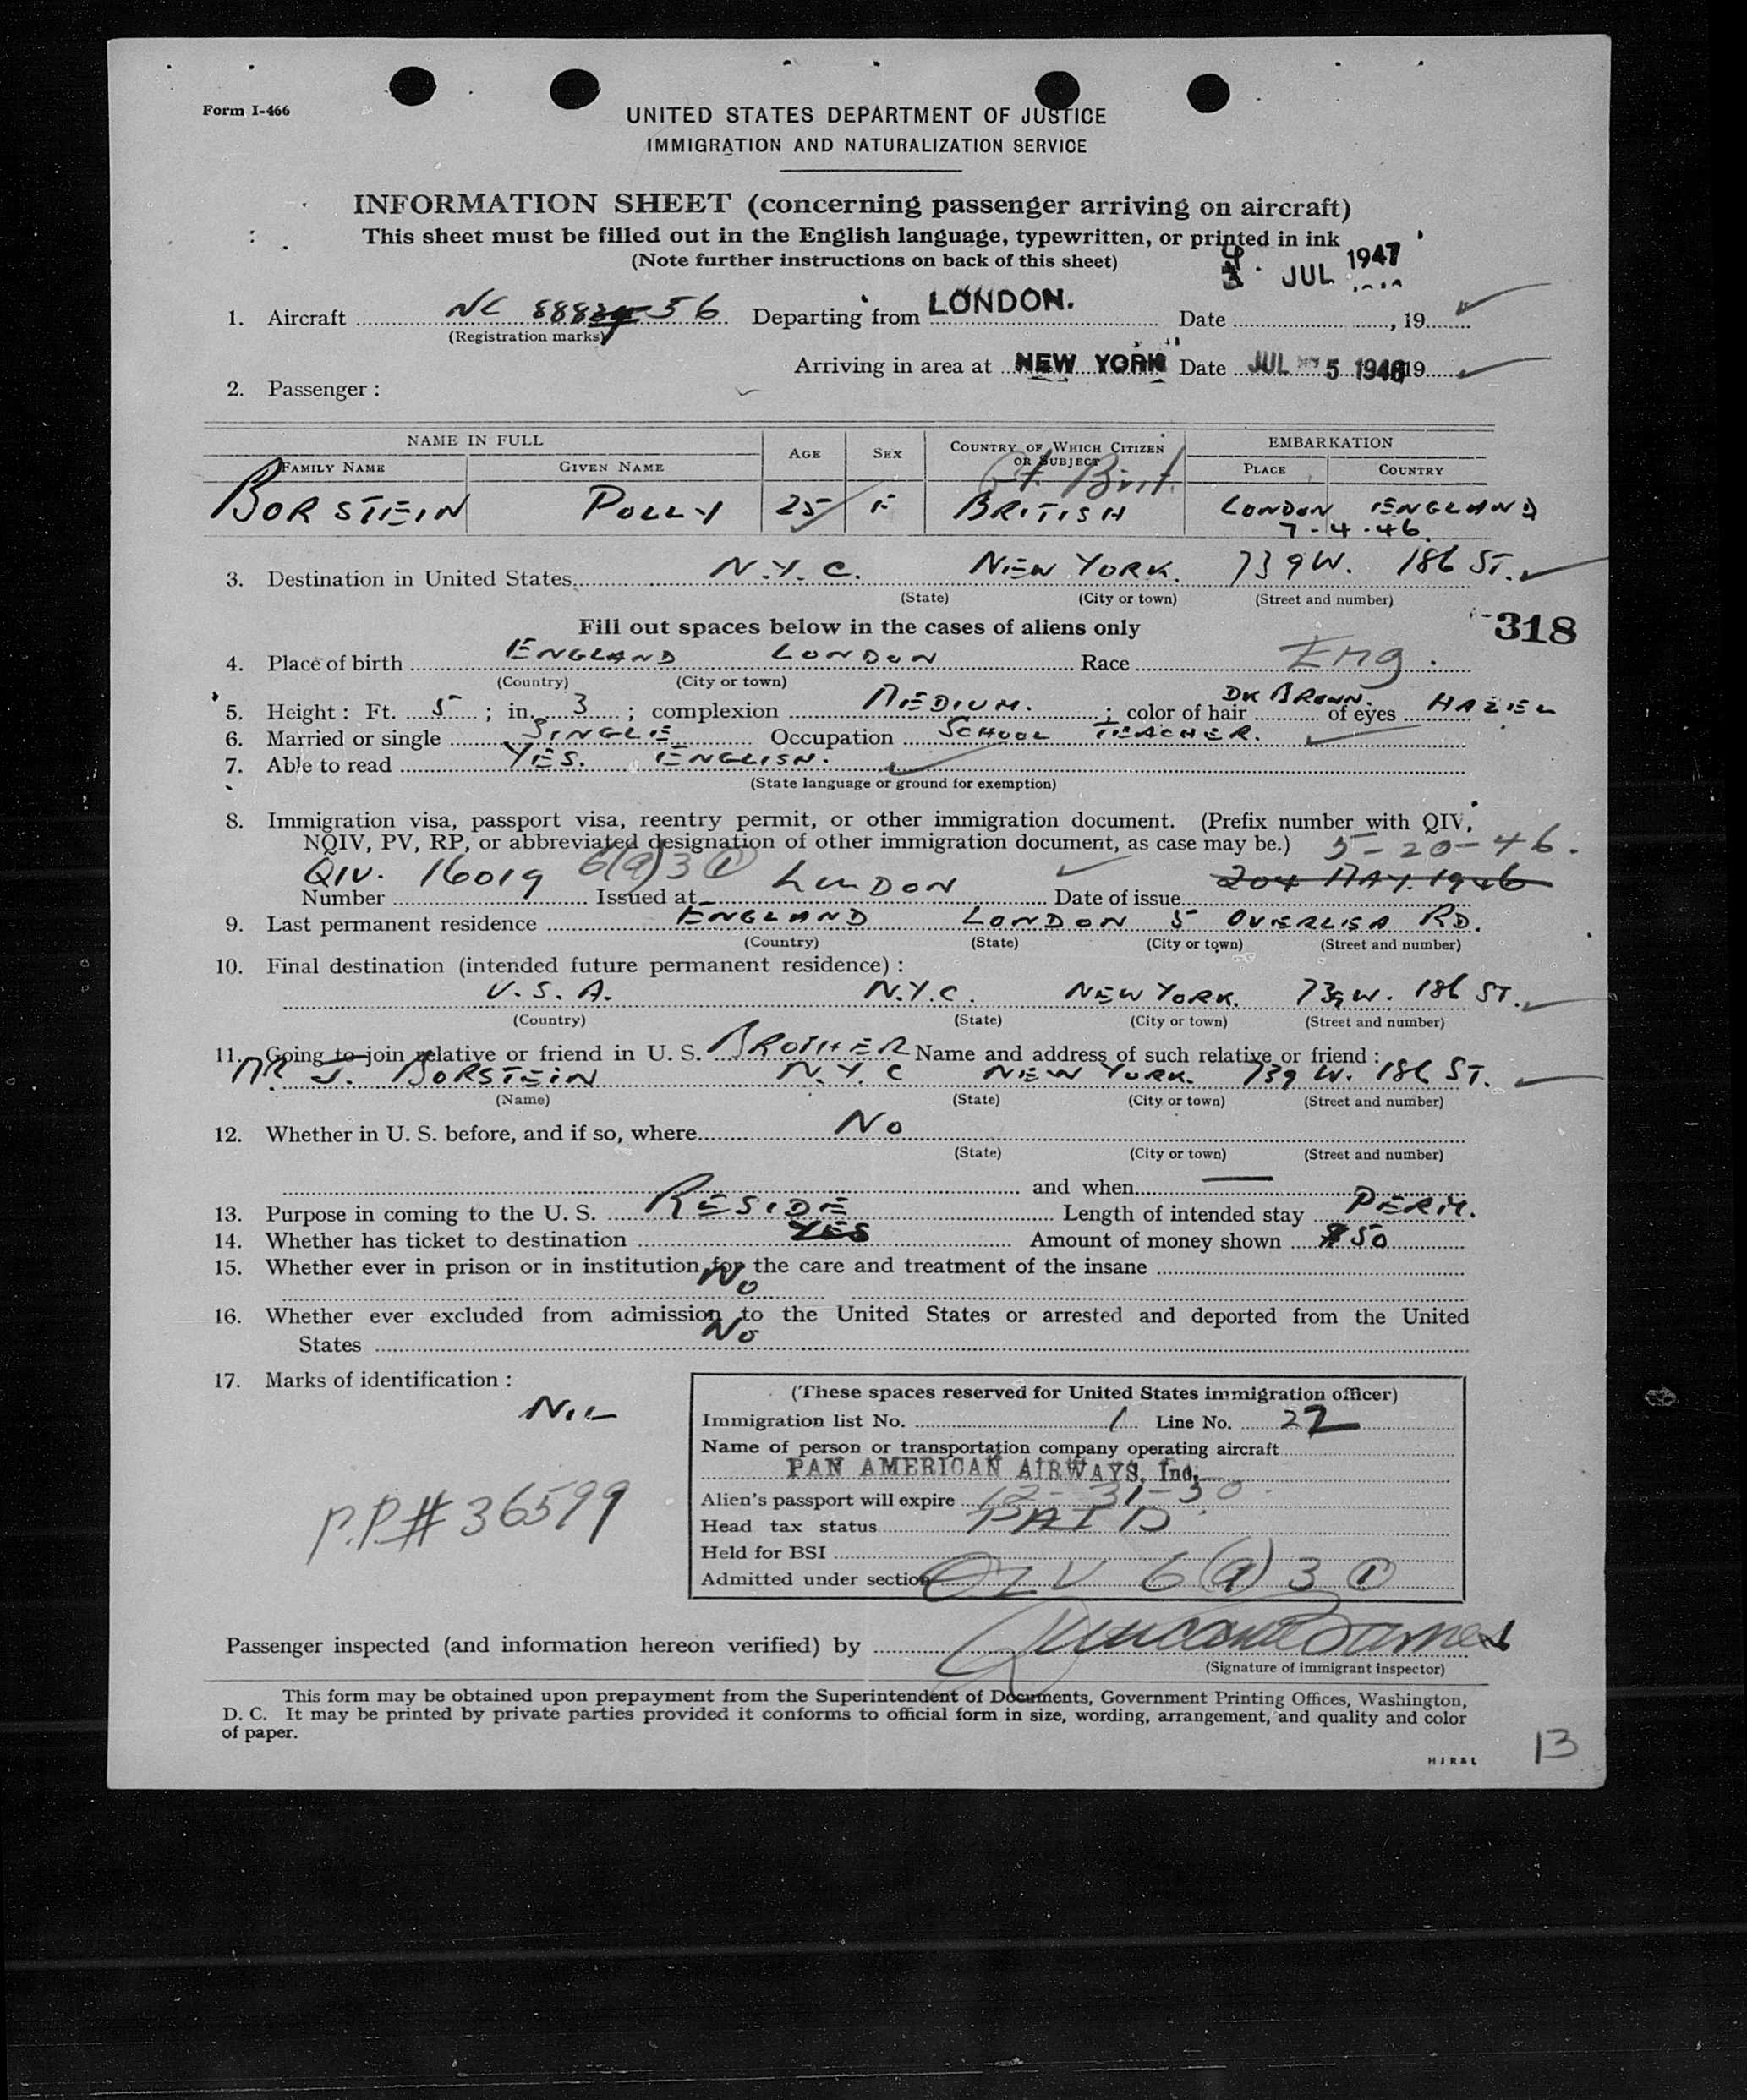 Form I-466
UNITED STATES DEPARTMENT OF JUSTICE
IMMIGRATION AND NATURALIZATION SERVICE
INFORMATION SHEET (concerning passenger arriving on aircraft)
This sheet must be filled out in the English language, typewritten, or printed in ink
(Note further instructions on back of this sheet)
4 JUL 1947
1. Aircraft NC 888 56 Departing from LONDON. Date , 19
(Registration marks)
Arriving in area at NEW YORK Date JUL 5 1946 19
2. Passenger :
NAME IN FULL AGE SEX COUNTRY OF WHICH CITIZEN OR SUBJECT EMBARKATION
FAMILY NAME GIVEN NAME PLACE COUNTRY
Gt. Brit.
BORSTEIN POLLY 25 F BRITISH LONDON ENGLAND
7-4-46
3. Destination in United States N.Y.C. NEW YORK. 739 W. 186 ST.
(State) (City or town) (Street and number)
318
Fill out spaces below in the cases of aliens only
4. Place of birth ENGLAND LONDON Race Eng.
(Country) (City or town)
5. Height : Ft. 5 ; in. 3 ; complexion MEDIUM. ; color of hair DK BROWN. of eyes HAZEL
6. Married or single SINGLE Occupation SCHOOL TEACHER.
7. Able to read YES. ENGLISH.
(State language or ground for exemption)
8. Immigration visa, passport visa, reentry permit, or other immigration document. (Prefix number with QIV,
NQIV, PV, RP, or abbreviated designation of other immigration document, as case may be.) 5-20-46.
Number QIV. 16019 6(a)3 ① Issued at LONDON Date of issue 20th MAY. 1946
9. Last permanent residence ENGLAND LONDON 5 OVERLEA RD.
(Country) (State) (City or town) (Street and number)
10. Final destination (intended future permanent residence) :
U.S.A. N.Y.C. NEW YORK. 739 W. 186 ST.
(Country) (State) (City or town) (Street and number)
11. Going to join relative or friend in U. S. BROTHER Name and address of such relative or friend :
MR J. BORSTEIN N.Y.C NEW YORK. 739 W. 186 ST.
(Name) (State) (City or town) (Street and number)
12. Whether in U. S. before, and if so, where NO
(State) (City or town) (Street and number)
and when —
13. Purpose in coming to the U. S. RESIDE Length of intended stay PERM.
14. Whether has ticket to destination YES Amount of money shown $50
15. Whether ever in prison or in institution for the care and treatment of the insane
NO
16. Whether ever excluded from admission to the United States or arrested and deported from the United
States NO
17. Marks of identification :
NIL
P.P.# 36599
(These spaces reserved for United States immigration officer)
Immigration list No. 1 Line No. 22
Name of person or transportation company operating aircraft
PAN AMERICAN AIRWAYS, Inc.
Alien's passport will expire 12-31-50
Head tax status PAID
Held for BSI
Admitted under section QIV 6(a)3 ①
Passenger inspected (and information hereon verified) by
(Signature of immigrant inspector)
This form may be obtained upon prepayment from the Superintendent of Documents, Government Printing Offices, Washington,
D. C. It may be printed by private parties provided it conforms to official form in size, wording, arrangement, and quality and color
of paper.
HJR&L
13